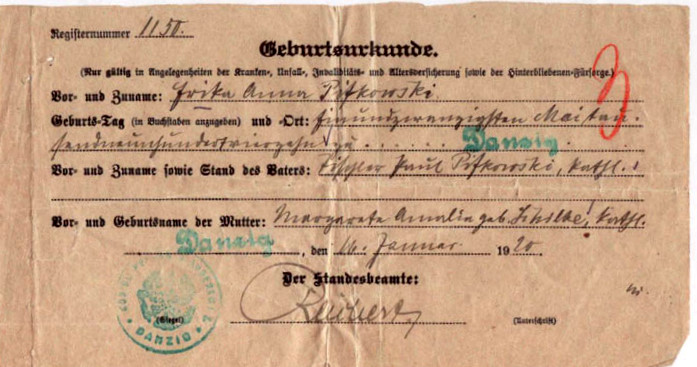 Registernummer 1150.
Geburtsurkunde.
(Nur gültig in Angelegenheiten der Kranken-, Unfall-, Invaliditäts- und Altersversicherung sowie der Hinterbliebenen-Fürsorge.)
3
Vor- und Zuname: Erika Anna Pitkowski.
Geburts-Tag (in Buchstaben anzugeben) und -Ort: einundzwanzigsten Mai tau-
sendneunhundertvierzehn zu Danzig
Vor- und Zuname sowie Stand des Vaters: Tischler Paul Pitkowski, kathl.
Vor- und Geburtsname der Mutter: Margarete Amalie geb. Schilke, kathl.
Danzig, den 16. Januar 1920.
Der Standesbeamte:
(Siegel) (Unterschrift)
DANZIG